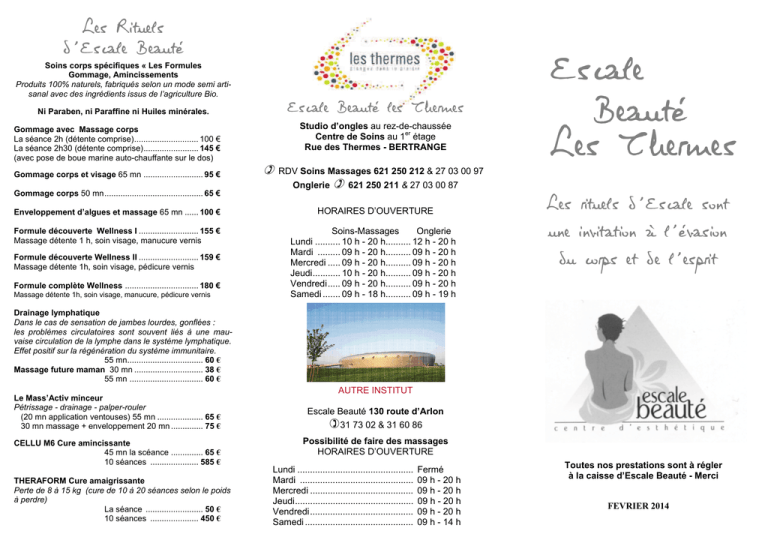 Les Rituels
d'Escale Beauté
Soins corps spécifiques « Les Formules
Gommage, Amincissements
Produits 100% naturels, fabriqués selon un mode semi arti-
sanal avec des ingrédients issus de l'agriculture Bio.
Ni Paraben, ni Paraffine ni Huiles minérales.
Gommage avec Massage corps
La séance 2h (détente comprise)........................... 100 €
La séance 2h30 (détente comprise)....................... 145 €
(avec pose de boue marine auto-chauffante sur le dos)
Gommage corps et visage 65 mn ......................... 95 €
Gommage corps 50 mn......................................... 65 €
Enveloppement d'algues et massage 65 mn ...... 100 €
Formule découverte Wellness I ......................... 155 €
Massage détente 1 h, soin visage, manucure vernis
Formule découverte Wellness II ......................... 159 €
Massage détente 1h, soin visage, pédicure vernis
Formule complète Wellness ............................... 180 €
Massage détente 1h, soin visage, manucure, pédicure vernis
Drainage lymphatique
Dans le cas de sensation de jambes lourdes, gonflées :
les problèmes circulatoires sont souvent liés à une mau-
vaise circulation de la lymphe dans le système lymphatique.
Effet positif sur la régénération du système immunitaire.
55 mn................................ 60 €
Massage future maman 30 mn ............................. 38 €
55 mn ............................... 60 €
Le Mass'Activ minceur
Pétrissage - drainage - palper-rouler
(20 mn application ventouses) 55 mn ................... 65 €
30 mn massage + enveloppement 20 mn ............. 75 €
CELLU M6 Cure amincissante
45 mn la scéance .............. 65 €
10 séances .................... 585 €
THERAFORM Cure amaigrissante
Perte de 8 à 15 kg (cure de 10 à 20 séances selon le poids
à perdre)
La séance ........................ 50 €
10 séances ..................... 450 €
les thermes
plongez dans le plaisir
Escale Beauté les Thermes
Studio d'ongles au rez-de-chaussée
Centre de Soins au 1er étage
Rue des Thermes - BERTRANGE
RDV Soins Massages 621 250 212 & 27 03 00 97
Onglerie 621 250 211 & 27 03 00 87
HORAIRES D'OUVERTURE
Soins-Massages Onglerie
Lundi .......... 10 h - 20 h.......... 12 h - 20 h
Mardi ......... 09 h - 20 h.......... 09 h - 20 h
Mercredi ..... 09 h - 20 h.......... 09 h - 20 h
Jeudi........... 10 h - 20 h.......... 09 h - 20 h
Vendredi..... 09 h - 20 h.......... 09 h - 20 h
Samedi ....... 09 h - 18 h.......... 09 h - 19 h
AUTRE INSTITUT
Escale Beauté 130 route d'Arlon
31 73 02 & 31 60 86
Possibilité de faire des massages
HORAIRES D'OUVERTURE
Lundi .............................................. Fermé
Mardi ............................................. 09 h - 20 h
Mercredi ......................................... 09 h - 20 h
Jeudi............................................... 09 h - 20 h
Vendredi......................................... 09 h - 20 h
Samedi ........................................... 09 h - 14 h
Escale
Beauté
Les Thermes
Les rituels d'Escale sont
une invitation à l'évasion
du corps et de l'esprit
escale
beauté
centre d'esthétique
Toutes nos prestations sont à régler
à la caisse d'Escale Beauté - Merci
FEVRIER 2014